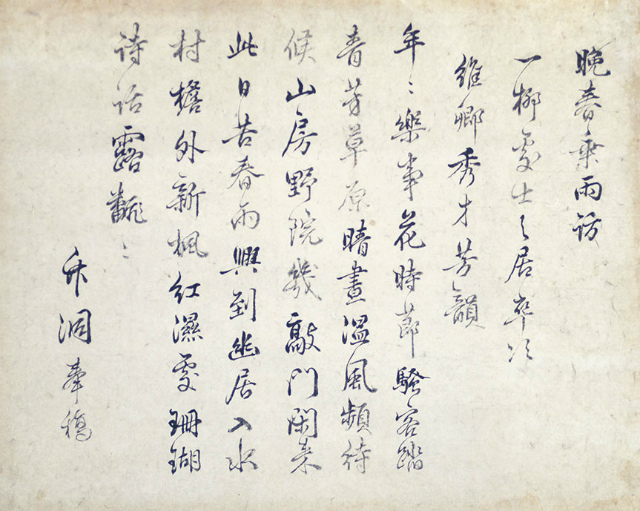 晚春乗雨訪
一柳處士之居卒次
維卿秀才芳韻
年〻樂事花時節騷客踏
青芳草原晴晝溫風頻待
候山房野院幾敲門閑來
此日苦春雨興到幽居入水
村檐外新楓紅濕處珊瑚
詩話露飜〻
洞拳稿